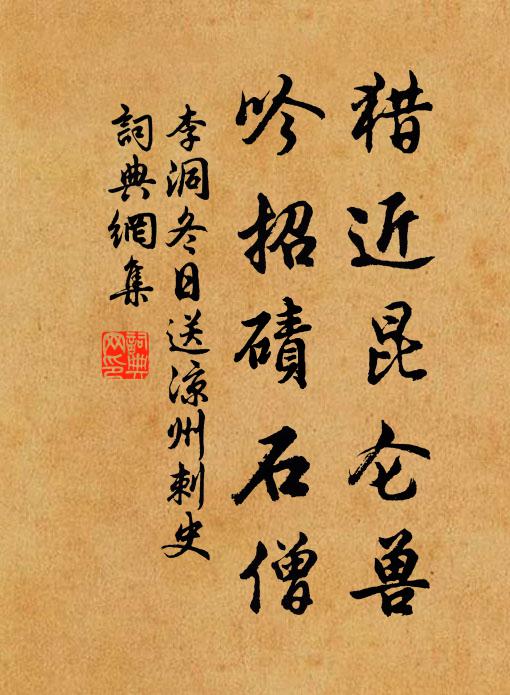 猎近昆仑兽
吟招磧石僧
李洞冬日送凉州刺史
詞典網集
詞典
网印